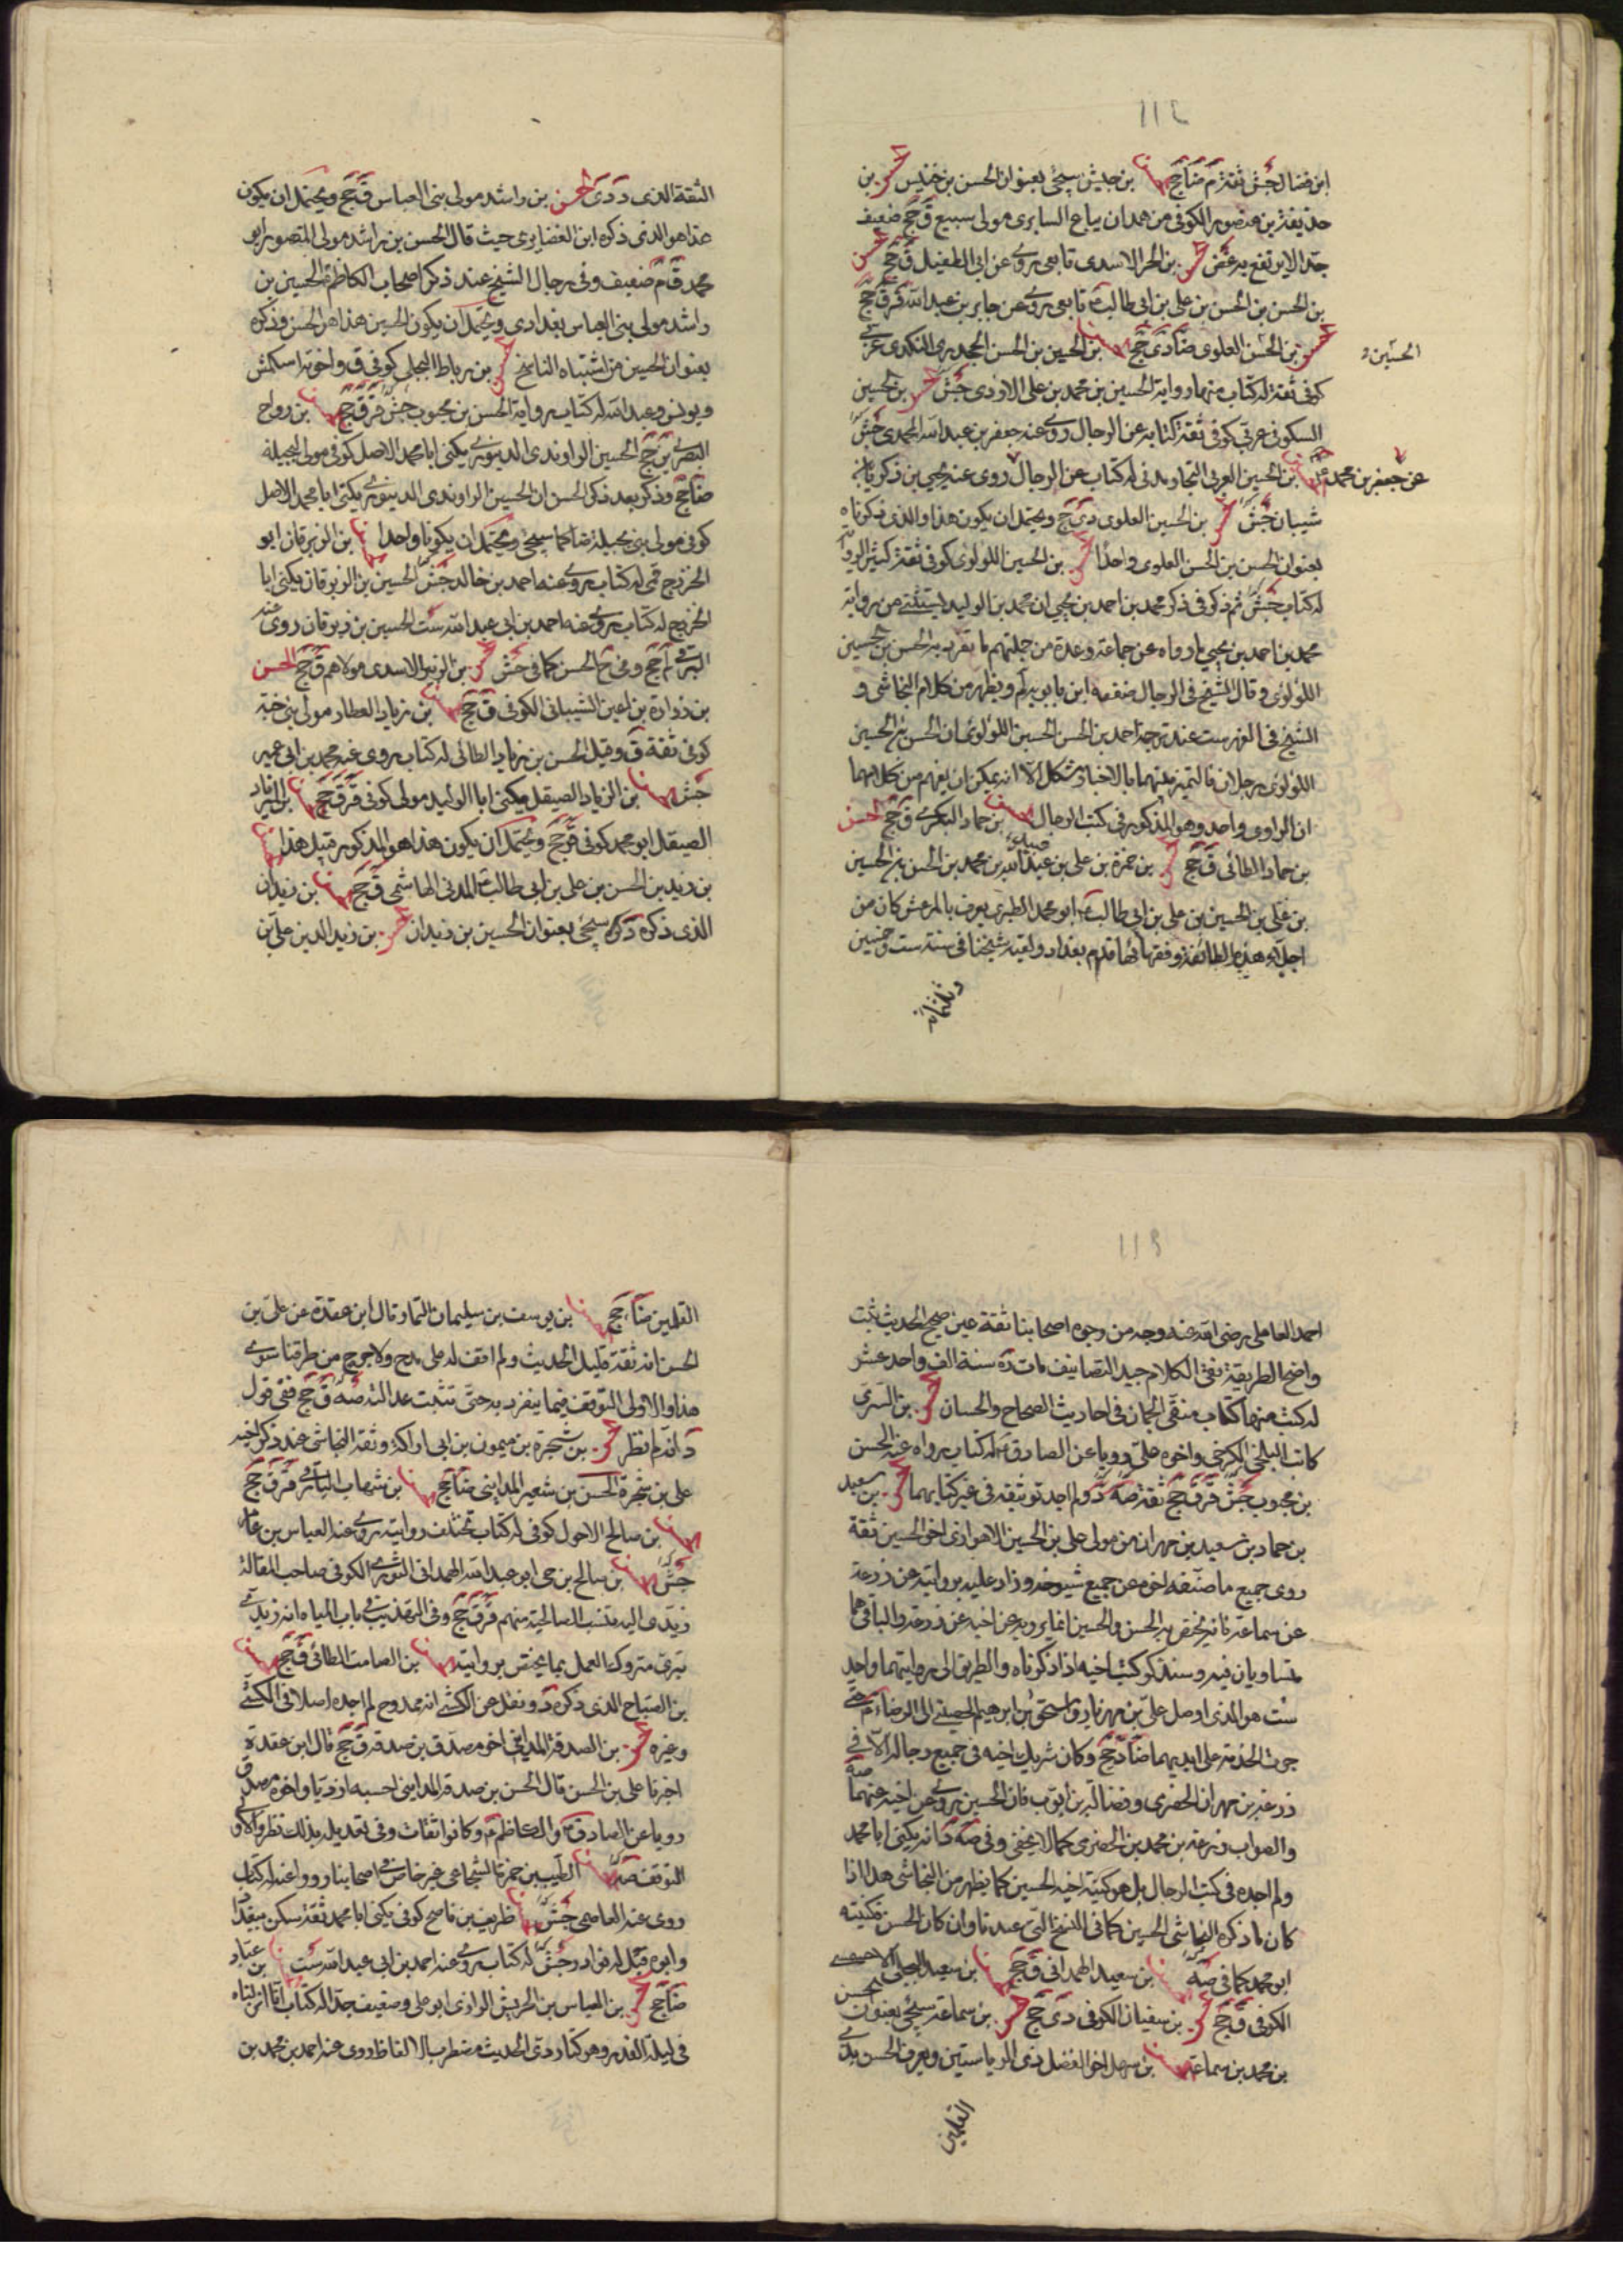 ابن فضال جش ثقة م ضا جج الحسن بن حبيش سيجئ بعنوان الحسن بن خنيس الحسن بن
حذيفة بن منصور الكوفى من همدان بياع السابرى مولى سبيع ق جج ضعيف
جدا لا يرتفع به غض الحسن بن الحر الاسدى تابعى روى عن ابى الطفيل ق جج الحسن
بن الحسن بن الحسن بن على بن ابى طالب ع تابعى روى عن جابر بن عبد الله قر ق جج
الحسن بن الحسن العلوى ضا دى جج الحسن بن الحسين بن الحسن الجحدرى الكندى عربى
الحسين
كوفى ثقة له كتاب منها رواية الحسين بن محمد بن على الازدى جش الحسن بن الحسين
السكونى عربى كوفى ثقة كتابه عن الرجال روى عنه جعفر بن عبد الله المحمدى جش
الحسن بن الحسين العرنى النجار مدنى له كتاب عن الرجال روى عنه يحيى بن زكريا بن
عن جعفر بن محمد ع
شيبان جش الحسن بن الحسين العلوى دى جج ويحتمل ان يكون هذا والذى ذكرناه
بعنوان الحسن بن الحسن العلوى واحدا الحسن بن الحسين اللؤلوى كوفى ثقة كثير الرواية
له كتاب جش ثم ذكر فى ذكر محمد بن احمد بن يحيى ان محمد بن الوليد يستثنى من رواية
محمد بن احمد بن يحيى ما رواه عن جماعة وعدة من جملتهم ما تفرد به الحسن بن الحسين
اللؤلوى وقال الشيخ فى الرجال ضعفه ابن بابويه لم ويظهر من كلام النجاشى و
الشيخ فى الفهرست عند ترجمة احمد بن الحسن الحسين اللؤلوى ان الحسن بن الحسين
اللؤلوى رجلان فالتميز بينهما بالاخبار مشكل الا انه يمكن ان يفهم من كلامهما
ان الراوى واحد وهو المذكور فى كتب الرجال الحسن بن حماد البكرى ق جج الحسن
بن حماد الطائى ق جج الحسن بن حمزة بن على بن عبد الله بن محمد بن الحسن بن الحسين
بن على بن الحسين بن على بن ابى طالب ع ابو محمد الطبرى يعرف بالمرعش كان من
اجلاء هذه الطائفة وفقهائها قدم بغداد ولقيه شيخنا فى سنة ست وخمسين
وثلثمائة
الثقة الذى د دى الحسن بن راشد مولى بنى العباس ق جج ويحتمل ان يكون
هذا هو الذى ذكره ابن الغضايرى حيث قال الحسن بن راشد مولى المنصور ابو
محمد ق م ضعيف وفى رجال الشيخ عند ذكر اصحاب الكاظم ع الحسين بن
راشد مولى بنى العباس بغدادى ويحتمل ان يكون الحسين هذا هو الحسن وذكره
بعنوان الحسين من اشتباه الناسخ الحسن بن رباط البجلى كوفى ق واخوته اسحق
ويونس وعبد الله له كتاب رواية الحسن بن محبوب جش قر ق جج الحسن بن رواح
البصرى ين جج الحسين الراوندى الدينورى يكنى ابا محمد الاصل كوفى مولى لبجيلة
ضا جج وذكر بعد ذكر الحسن ان الحسين الراوندى الدينورى يكنى ابا محمد الاصل
كوفى مولى بنى بجيلة ضا كما سيجئ ويحتمل ان يكونا واحدا الحسن بن الزبرقان ابو
الخزرج قمى له كتاب روى عنه احمد بن خالد جش الحسين بن الزبرقان يكنى ابا
الخزرج له كتاب روى عنه احمد بن ابى عبد الله ست الحسين بن زبرقان روى عنه
البرقى لم جج وفى خ الحسن كما فى جش الحسن بن الزبير الاسدى مولاهم ق جج الحسن
بن زرارة بن اعين الشيبانى الكوفى ق جج الحسن بن زياد العطار مولى بنى ضبة
كوفى ثقة ق وقيل الحسن بن زياد الطائى له كتاب روى عنه محمد بن ابى عمير
جش الحسن بن الزياد الصيقل يكنى ابا الوليد مولى كوفى قر ق جج الحسن بن الزياد
الصيقل ابو محمد كوفى قر جج ويحتمل ان يكون هذا هو المذكور قبل هذا الحسن
بن زيد بن الحسن بن على بن ابى طالب ع المدنى الهاشمى ق جج الحسن بن زيدان
الذى ذكره د كر سيجئ بعنوان الحسين بن زيدان الحسن بن زيد الدين على بن
احمد العاملى رضى الله عنه وجه من وجوه اصحابنا ثقة عين صحيح الحديث ثبت
واضح الطريقة نقى الكلام جيد التصانيف مات ره سنة الف واحد عشر
له كتب منها كتاب منتقى الجمان فى احاديث الصحاح والحسان الحسن بن السرى
كاتب البلخى الكرخى واخوه على رويا عن الصادق ع له كتاب رواه عنه الحسن
بن محبوب جش قر ق جج ثقة صه د ولم اجد توثيقه فى غير كتابيهما الحسن بن سعيد
بن حماد بن سعيد بن مهران من مولى على بن الحسين الاهوازى اخو الحسين ثقة
روى جميع ما صنفه اخوه عن جميع شيوخه وزاد عليه بروايته عن زرعة
عن سماعة فانه يختص به الحسن والحسين انما يرويه عن اخيه عن زرعة والباقى هما
متساويان فيه وسنذكر كتب اخيه اذا ذكرناه والطريق الى روايتهما واحد
ست هو الذى اوصل على بن مهزيار واسحق بن ابراهيم الحضينى الى الرضا ع حتى
جرت الخدمة على ايديهما ضا د جج وكان شريك اخيه فى جميع رجاله الا فى
زرعة بن مهران الحضرمى وفضالة بن ايوب فان الحسين يروى عن اخيه عنهما صه
والصواب زرعة بن محمد بن الحضرمى كما لا يخفى وفى صه د انه يكنى ابا محمد
ولم اجده فى كتب الرجال بل هو كنية اخيه الحسين كما يظهر من النجاشى هذا اذا
كان ما ذكره النجاشى الحسين كما فى النسخ التى عندنا وان كان الحسن فكنيته
ابو محمد كما فى صه الحسن بن سعيد الهمدانى ق جج الحسن بن سعيد البجلى الاحمسى
الكوفى ق جج الحسن بن سفيان الكوفى دى جج الحسن بن سماعة سيجئ بعنوان الحسن
بن محمد بن سماعة الحسن بن سهل اخو الفضل ذى الرياستين ويعرف الحسن بذى
القلمين
القلمين ضا جج الحسن بن يوسف بن سليمان التمار قال ابن عقدة عن على بن
الحسن انه ثقة قليل الحديث ولم اقف له على مدح ولا جرح من طرقنا سوى
هذا والاولى التوقف فيما ينفرد به حتى تثبت عدالته صه ق جج ففى قول
د انه م نظر الحسن بن شجرة بن ميمون بن ابى اراكة وثقه النجاشى عند ذكر اخيه
على بن شجرة الحسن بن شعير المداينى ضا جج الحسن بن شهاب البارقى قر ق جج
الحسن بن صالح الاحول كوفى له كتاب تختلف روايته روى عنه العباس بن عامر
جش الحسن بن صالح بن حى ابو عبد الله الهمدانى الثورى الكوفى صاحب المقالة
زيدى اليه تنسب الصالحية منهم قر ق جج وفى التهذيب فى باب المياه انه زيدى
بترى متروك العمل بما يختص بروايته الحسن بن الصامت الطائى ق جج الحسن
بن الصباح الذى ذكره د ونقل عن الكشى انه ممدوح لم اجده اصلا فى الكشى
وغيره الحسن بن الصدقة المداينى اخو مصدق بن صدقة ق جج قال ابن عقدة
اخبرنا على بن الحسن قال الحسن بن صدقة المداينى احسبه ازديا واخوه مصدق
رويا عن الصادق ع والكاظم ع وكانوا ثقات وفى تعديله بذلك نظر والاولى
التوقف صه الحسن الطيب بن حمزة الشجاعى غير خاص فى اصحابنا رووا عنه له كتاب
روى عنه العاصمى جش الحسن ظريف بن ناصح كوفى يكنى ابا محمد ثقة سكن ببغداد
وابوه قبل له نوادر جش له كتاب روى عنه احمد بن ابى عبد الله ست الحسن بن عباد
ضا جج الحسن بن العباس بن الحريش الرازى ابو على وضعيف جدا له كتاب انا انزلناه
فى ليلة القدر وهو كتاب ردى الحديث مضطرب الالفاظ روى عنه احمد بن محمد بن